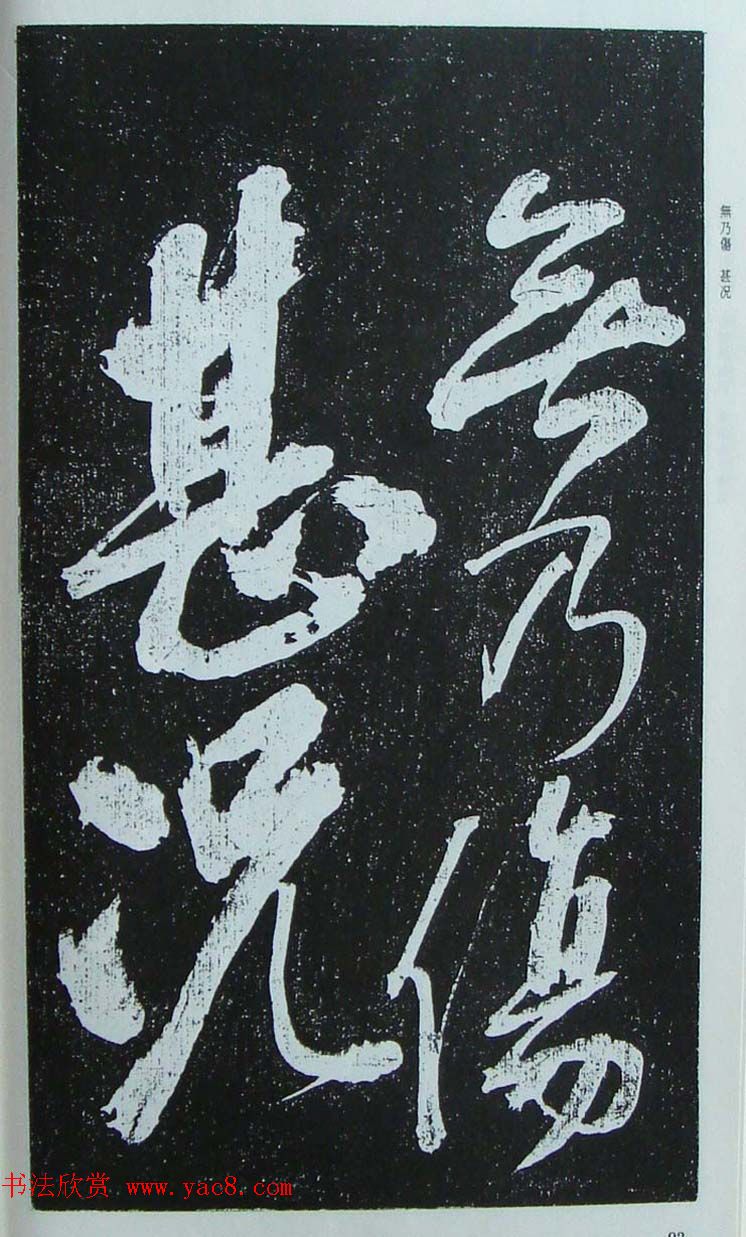 無乃傷
甚况
無乃傷 甚况
书法欣赏 www.yac8.com